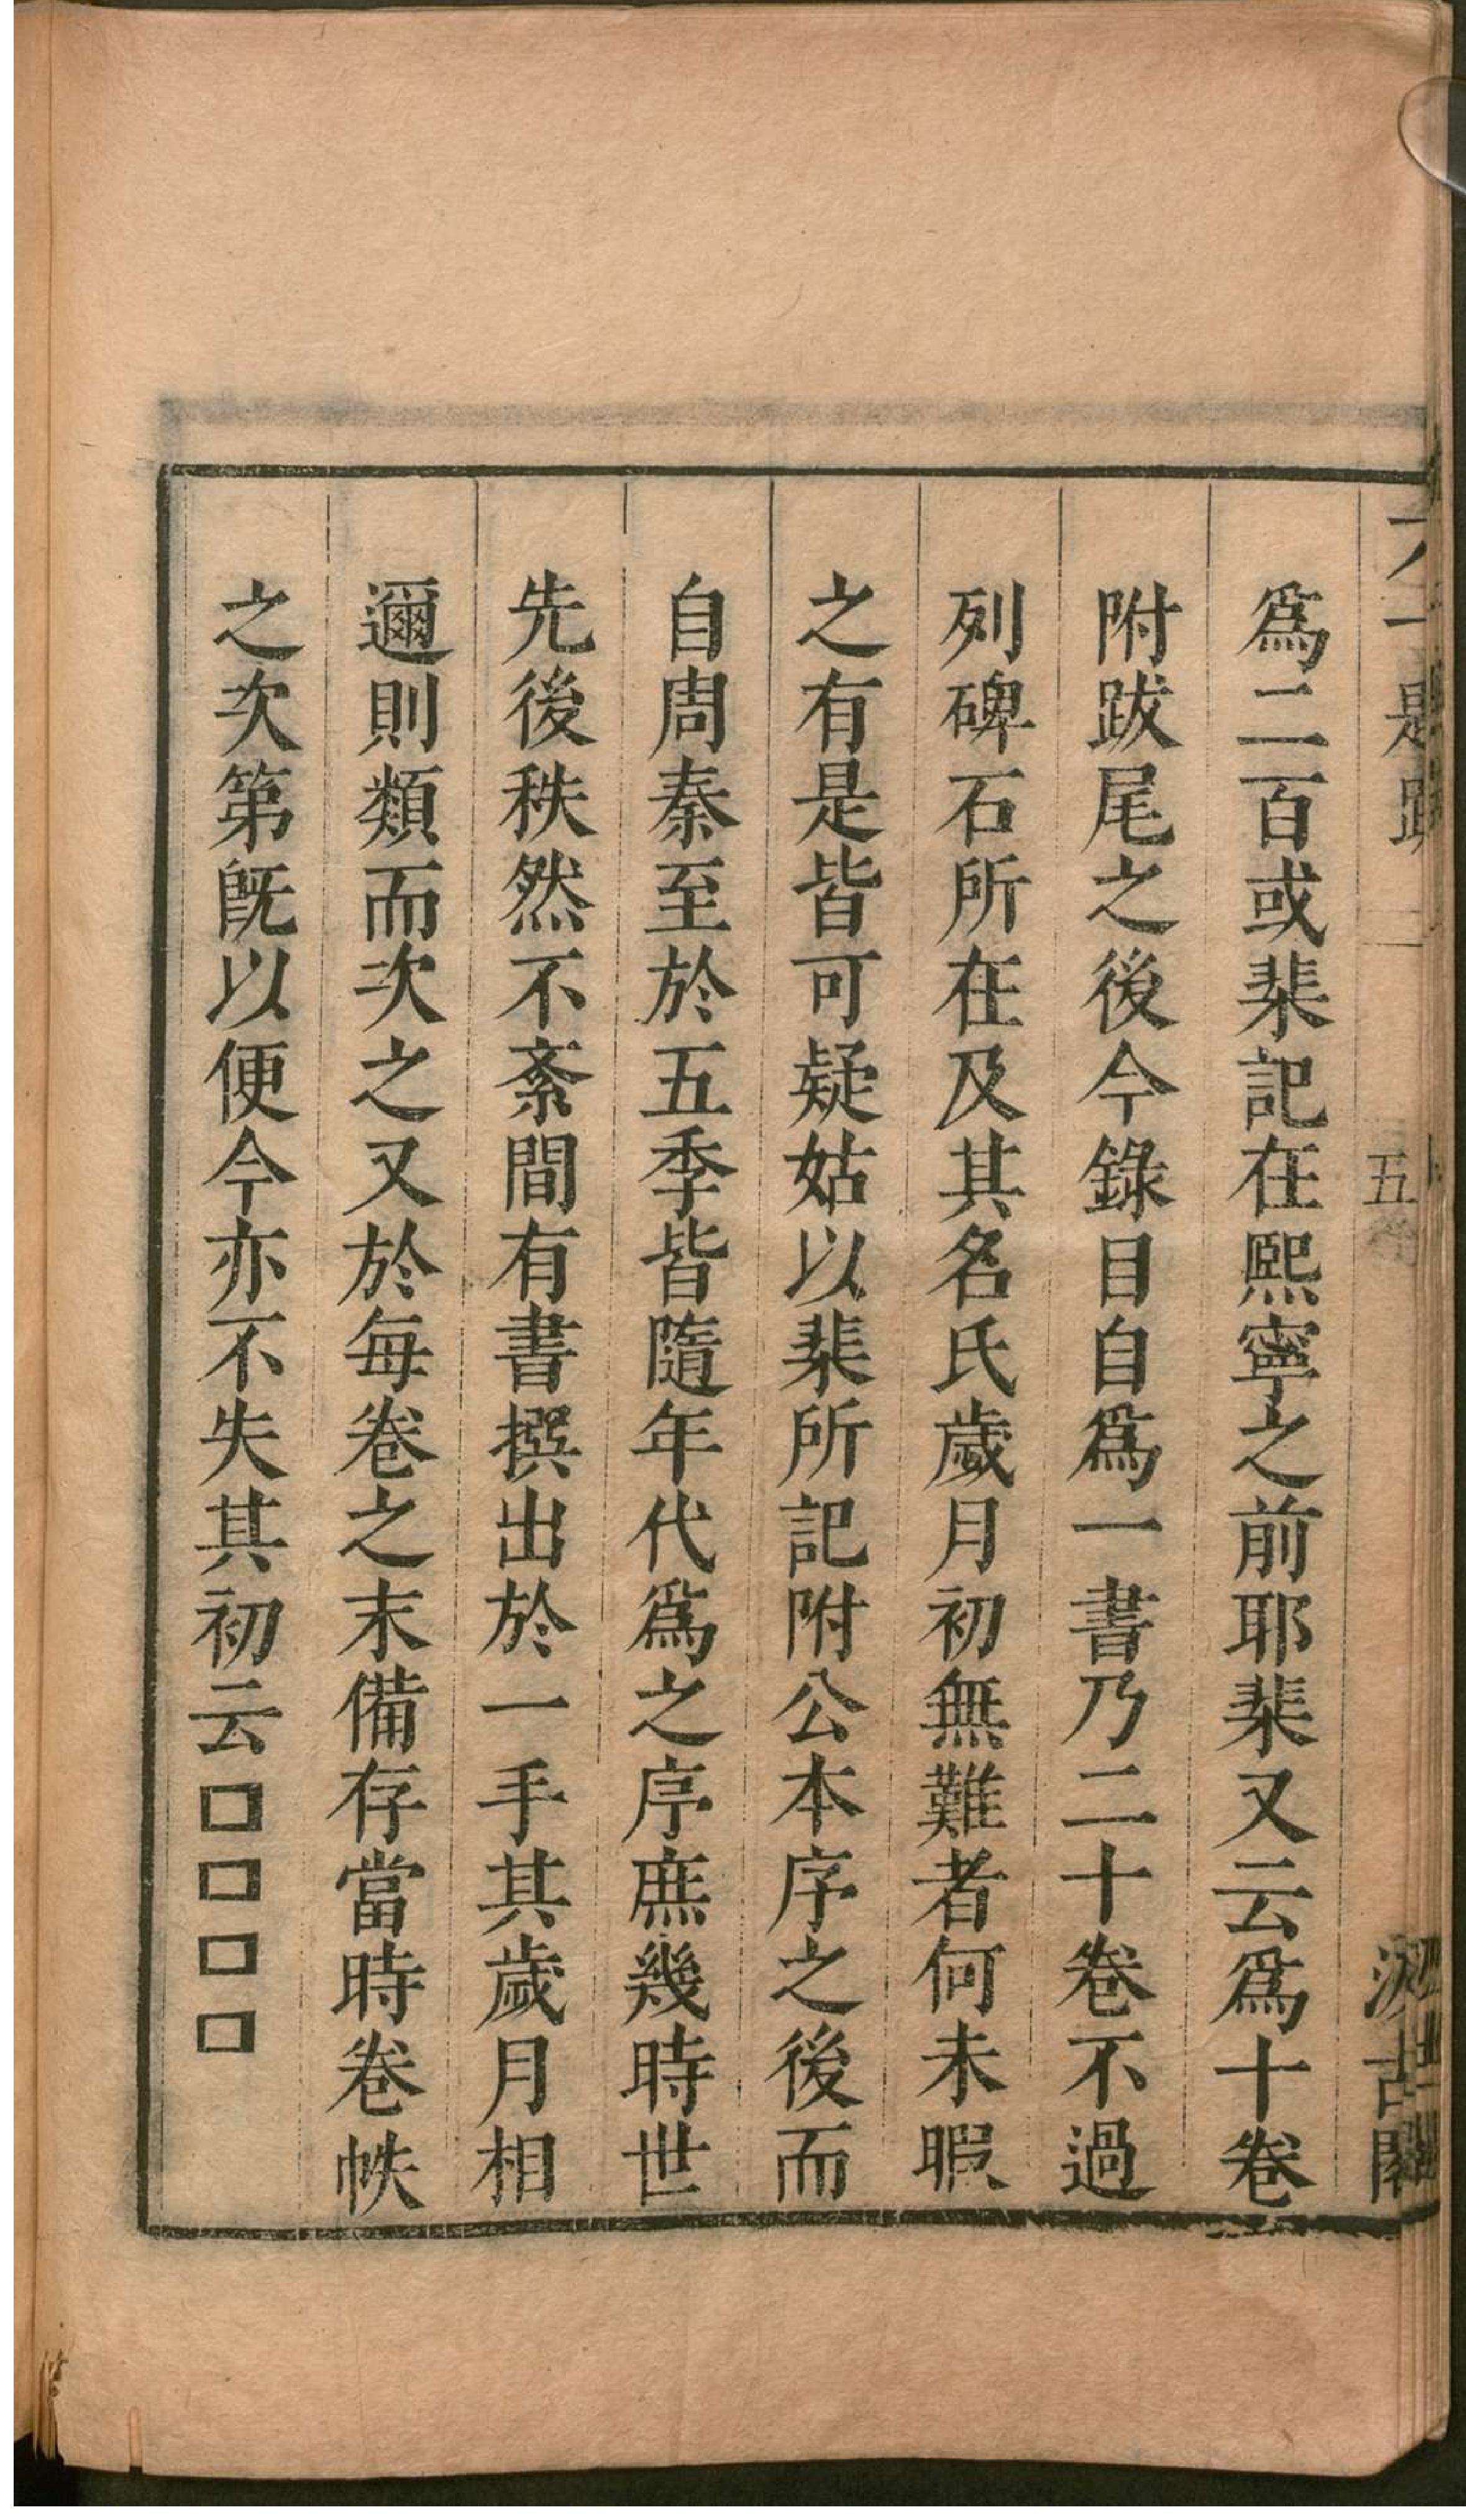 爲二百或棐記在熙寧之前耶棐又云爲十卷
附跋尾之後今錄目自爲一書乃二十卷不過
列碑石所在及其名氏歲月初無難者何未暇
之有是皆可疑姑以棐所記附公本序之後而
自周秦至於五季皆隨年代爲之序庶幾時世
先後秩然不紊間有書撰出於一手其歲月相
邇則類而次之又於每卷之末備存當時卷帙
之次第旣以便今亦不失其初云□□□□
五
汲古閣